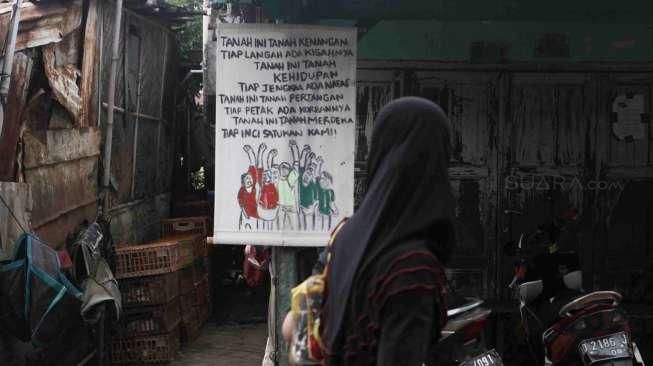 TANAH INI TANAH KENANGAN
TIAP LANGAH ADA KISAHNYA
TANAH INI TANAH
KEHIDUPAN
TIAP JENGKAL ADA NAFAS
TANAH INI TANAH PERJANGAN
TIAP PETAK ADA KORBANNYA
TANAH INI TANAH MERDEKA
TIAP INCI SATUKAN KAMI!!
SUARA.COM
2186